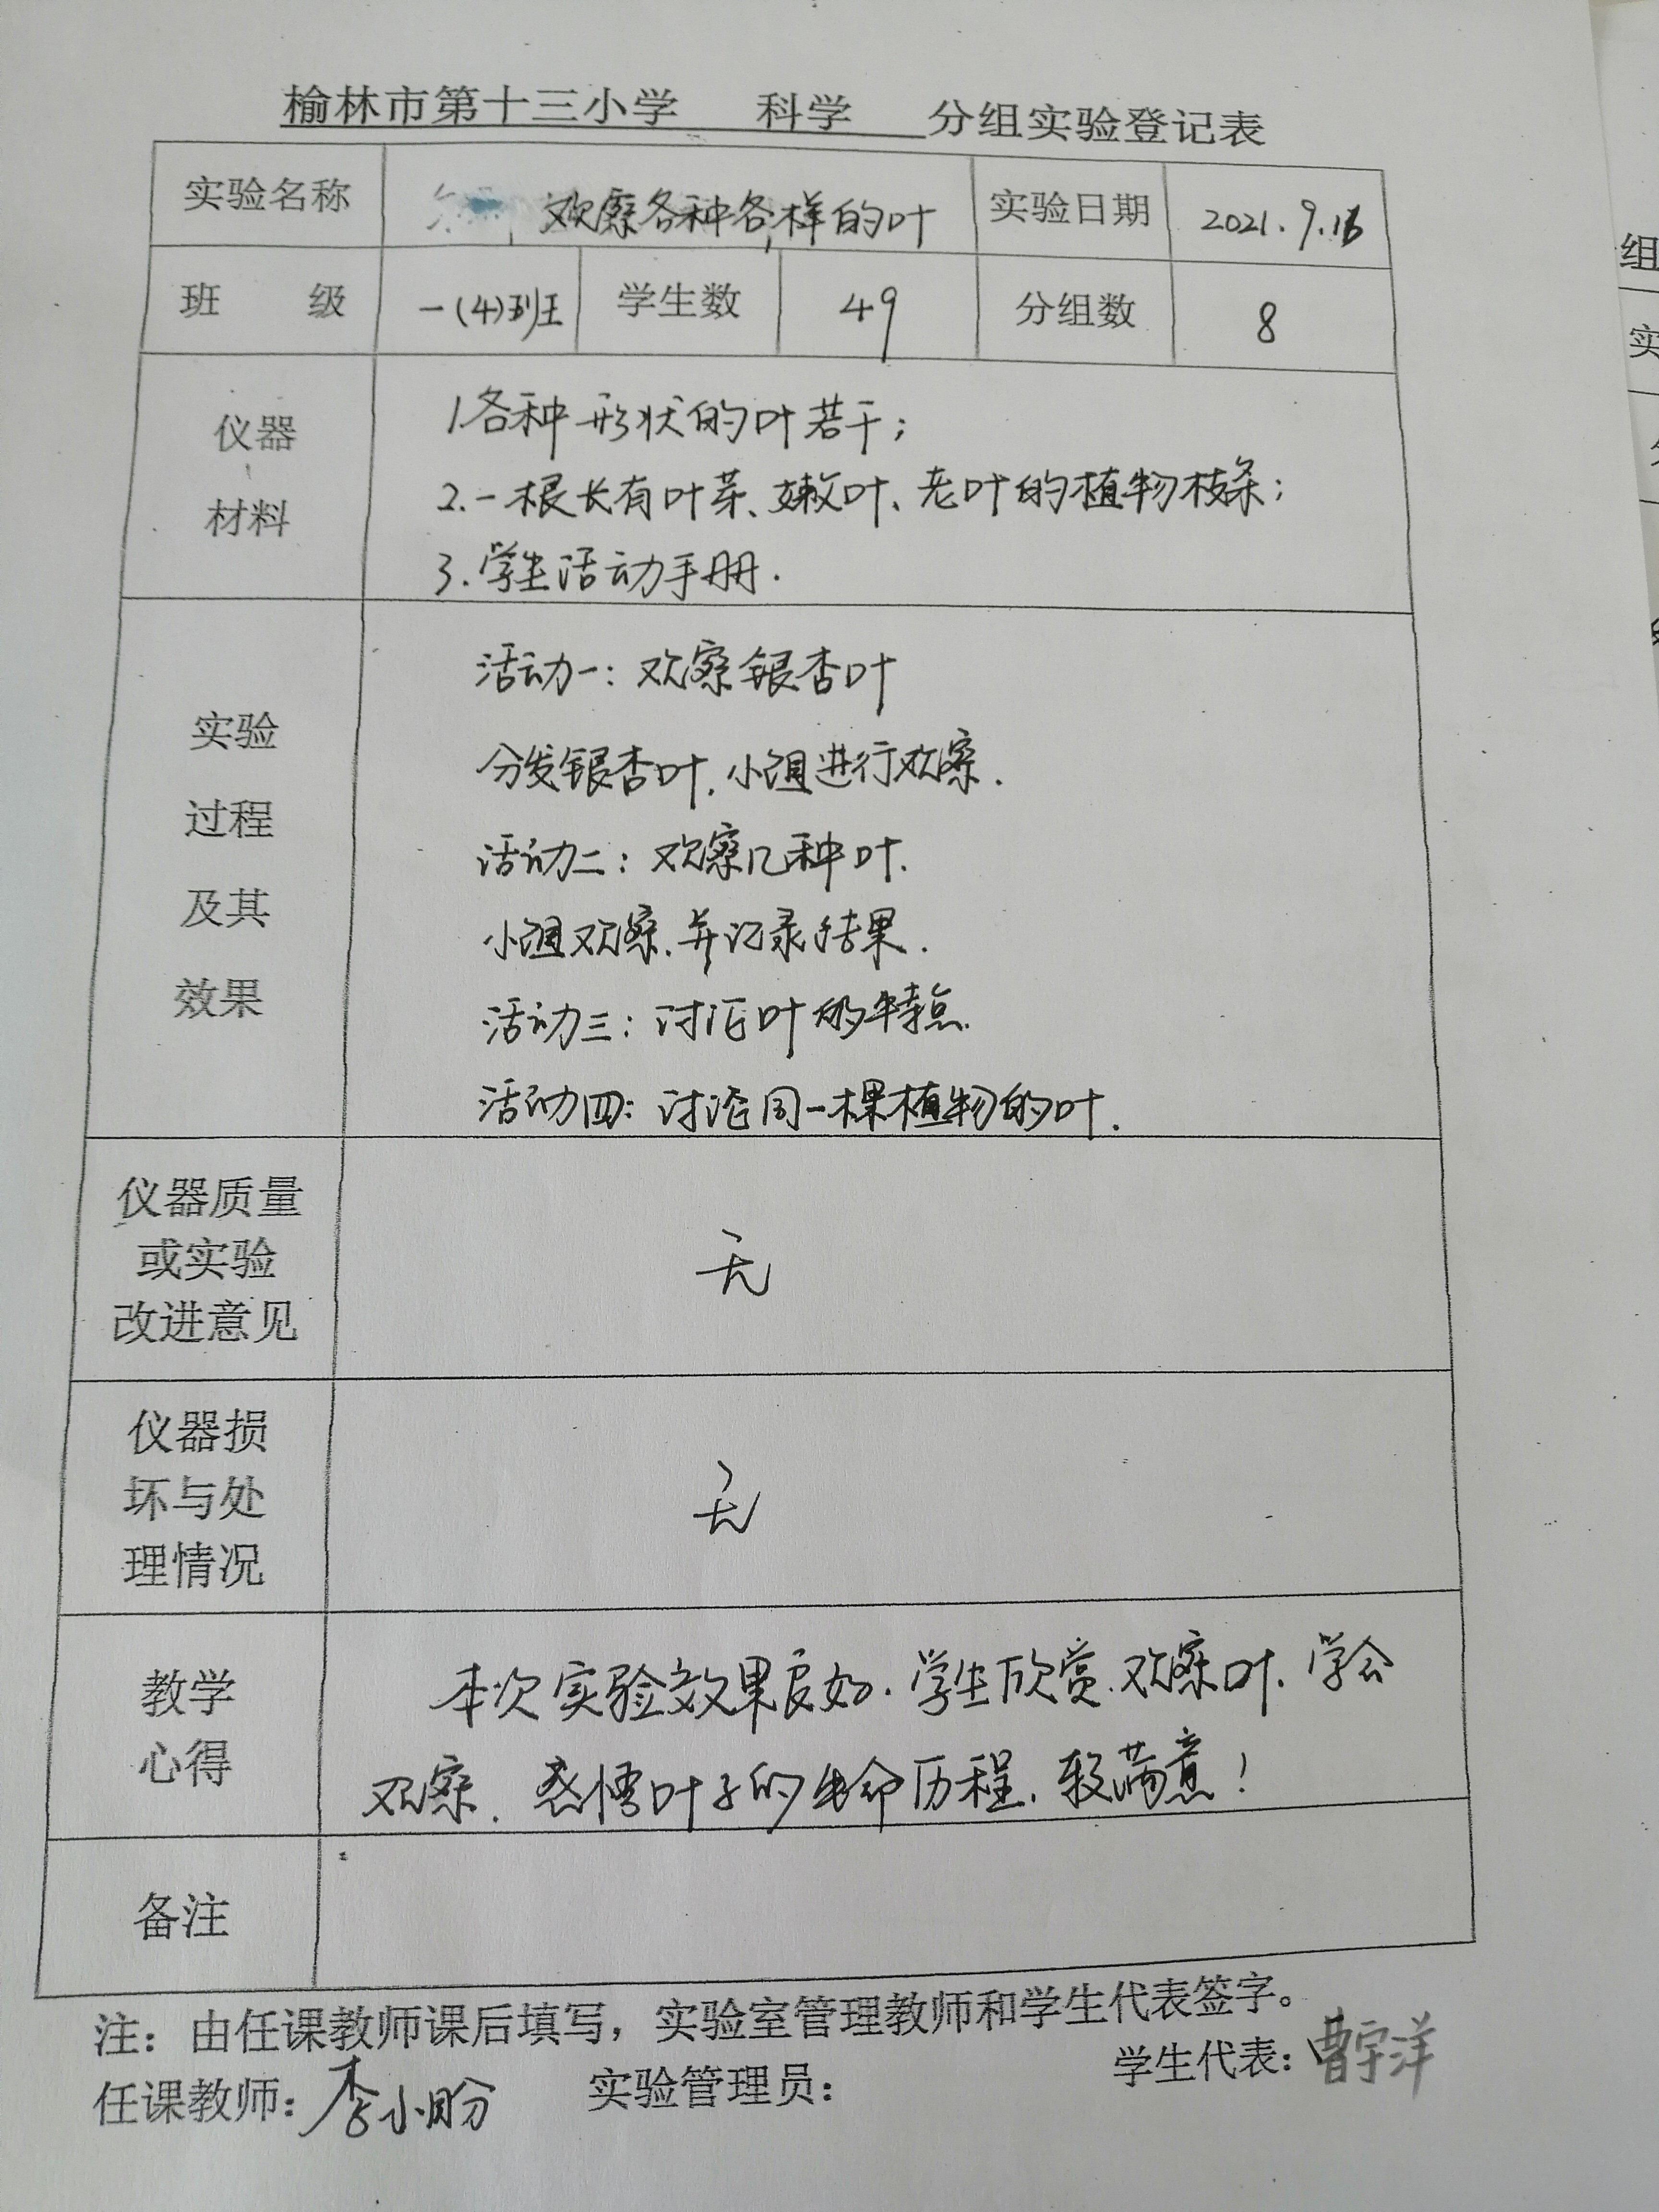 榆林市第十三小学 科学 分组实验登记表
实验名称 观察各种各样的叶 实验日期 2021.9.16
班 级 一(4)班 学生数 49 分组数 8
仪器
材料
1.各种形状的叶若干;
2.一根长有叶芽、嫩叶、老叶的植物枝条;
3.学生活动手册.
实验
过程
及其
效果
活动一:观察银杏叶
分发银杏叶,小组进行观察.
活动二:观察几种叶.
小组观察,并记录结果.
活动三:讨论叶的特点.
活动四:讨论同一棵植物的叶.
仪器质量
或实验
改进意见
无
仪器损
坏与处
理情况
无
教学
心得
本次实验效果良好.学生欣赏、观察叶,学会
观察,感悟叶子的生命历程,较满意!
备注
注:由任课教师课后填写,实验室管理教师和学生代表签字。
任课教师:李小盼 实验管理员: 学生代表:曹宇洋
组
实